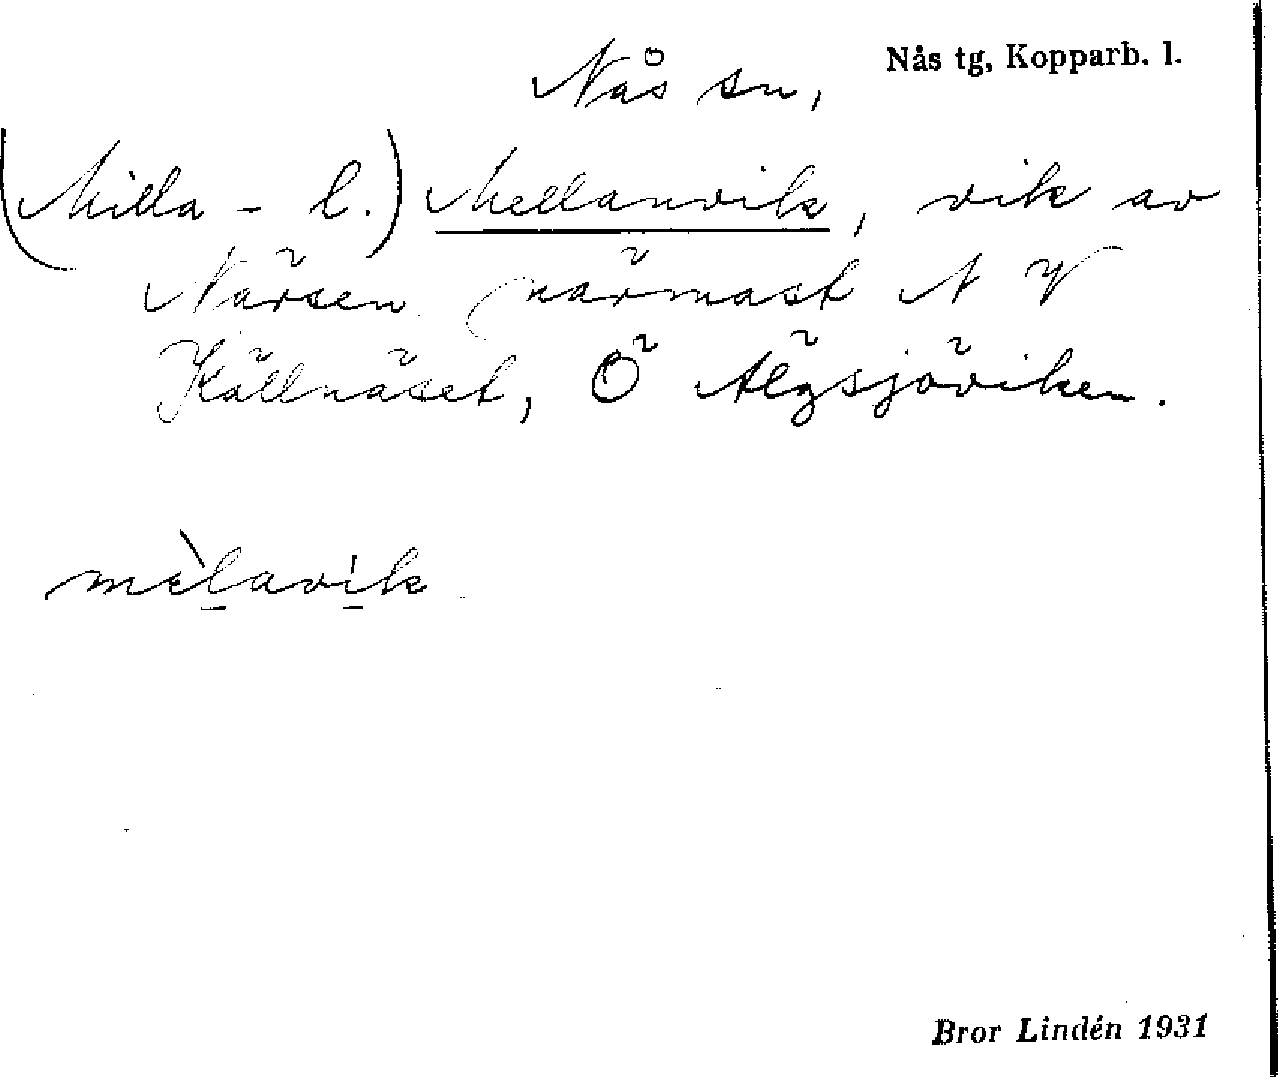 Nås sn, Nås tg, Kopparb. l.
(Milla - l.) Mellanvik, vik av
Närsen närmast N V
Källnäset, Ö Älgsjöviken.
mèlavik
Bror Lindén 1931